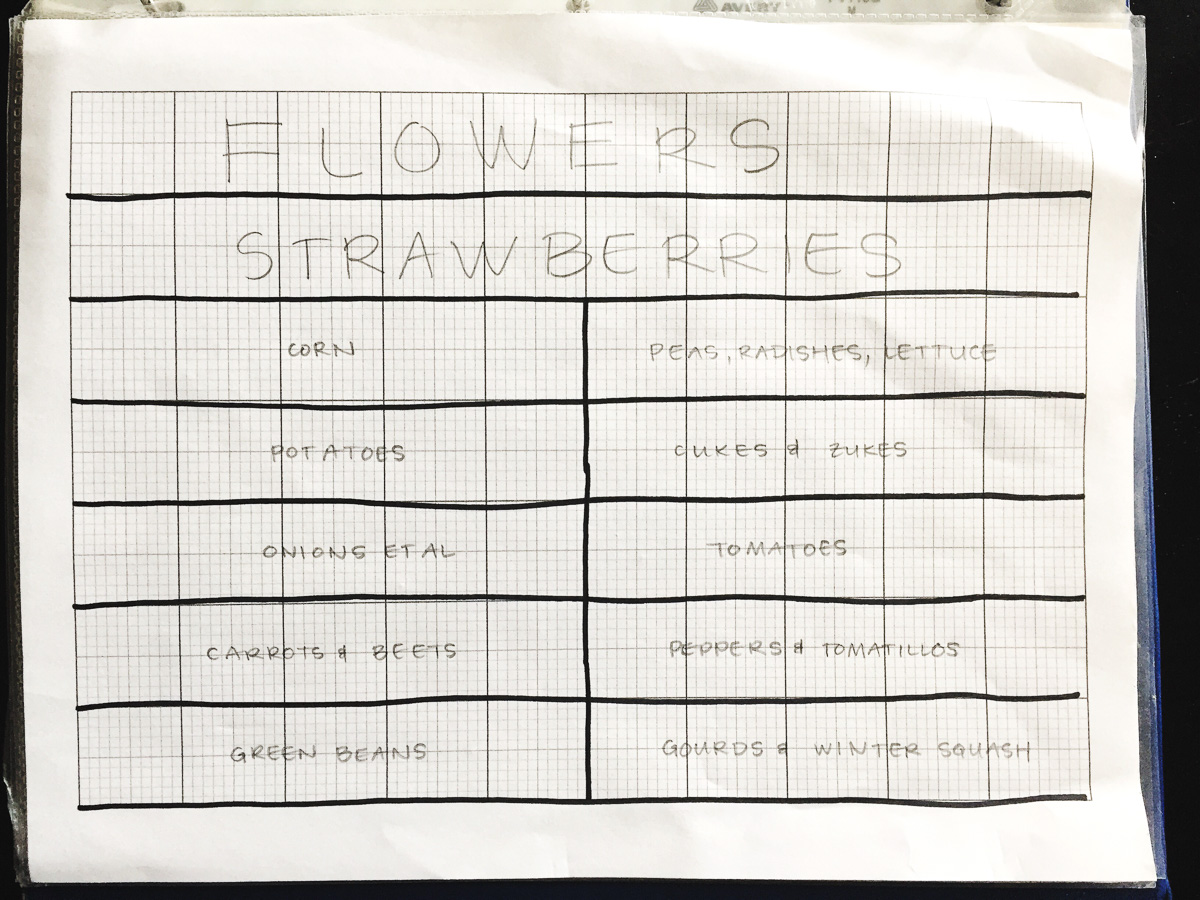 AVERY
FLOWERS
STRAWBERRIES
CORN
PEAS, RADISHES, LETTUCE
POTATOES
CUKES & ZUKES
ONIONS ET AL
TOMATOES
CARROTS & BEETS
PEPPERS & TOMATILLOS
GREEN BEANS
GOURDS & WINTER SQUASH